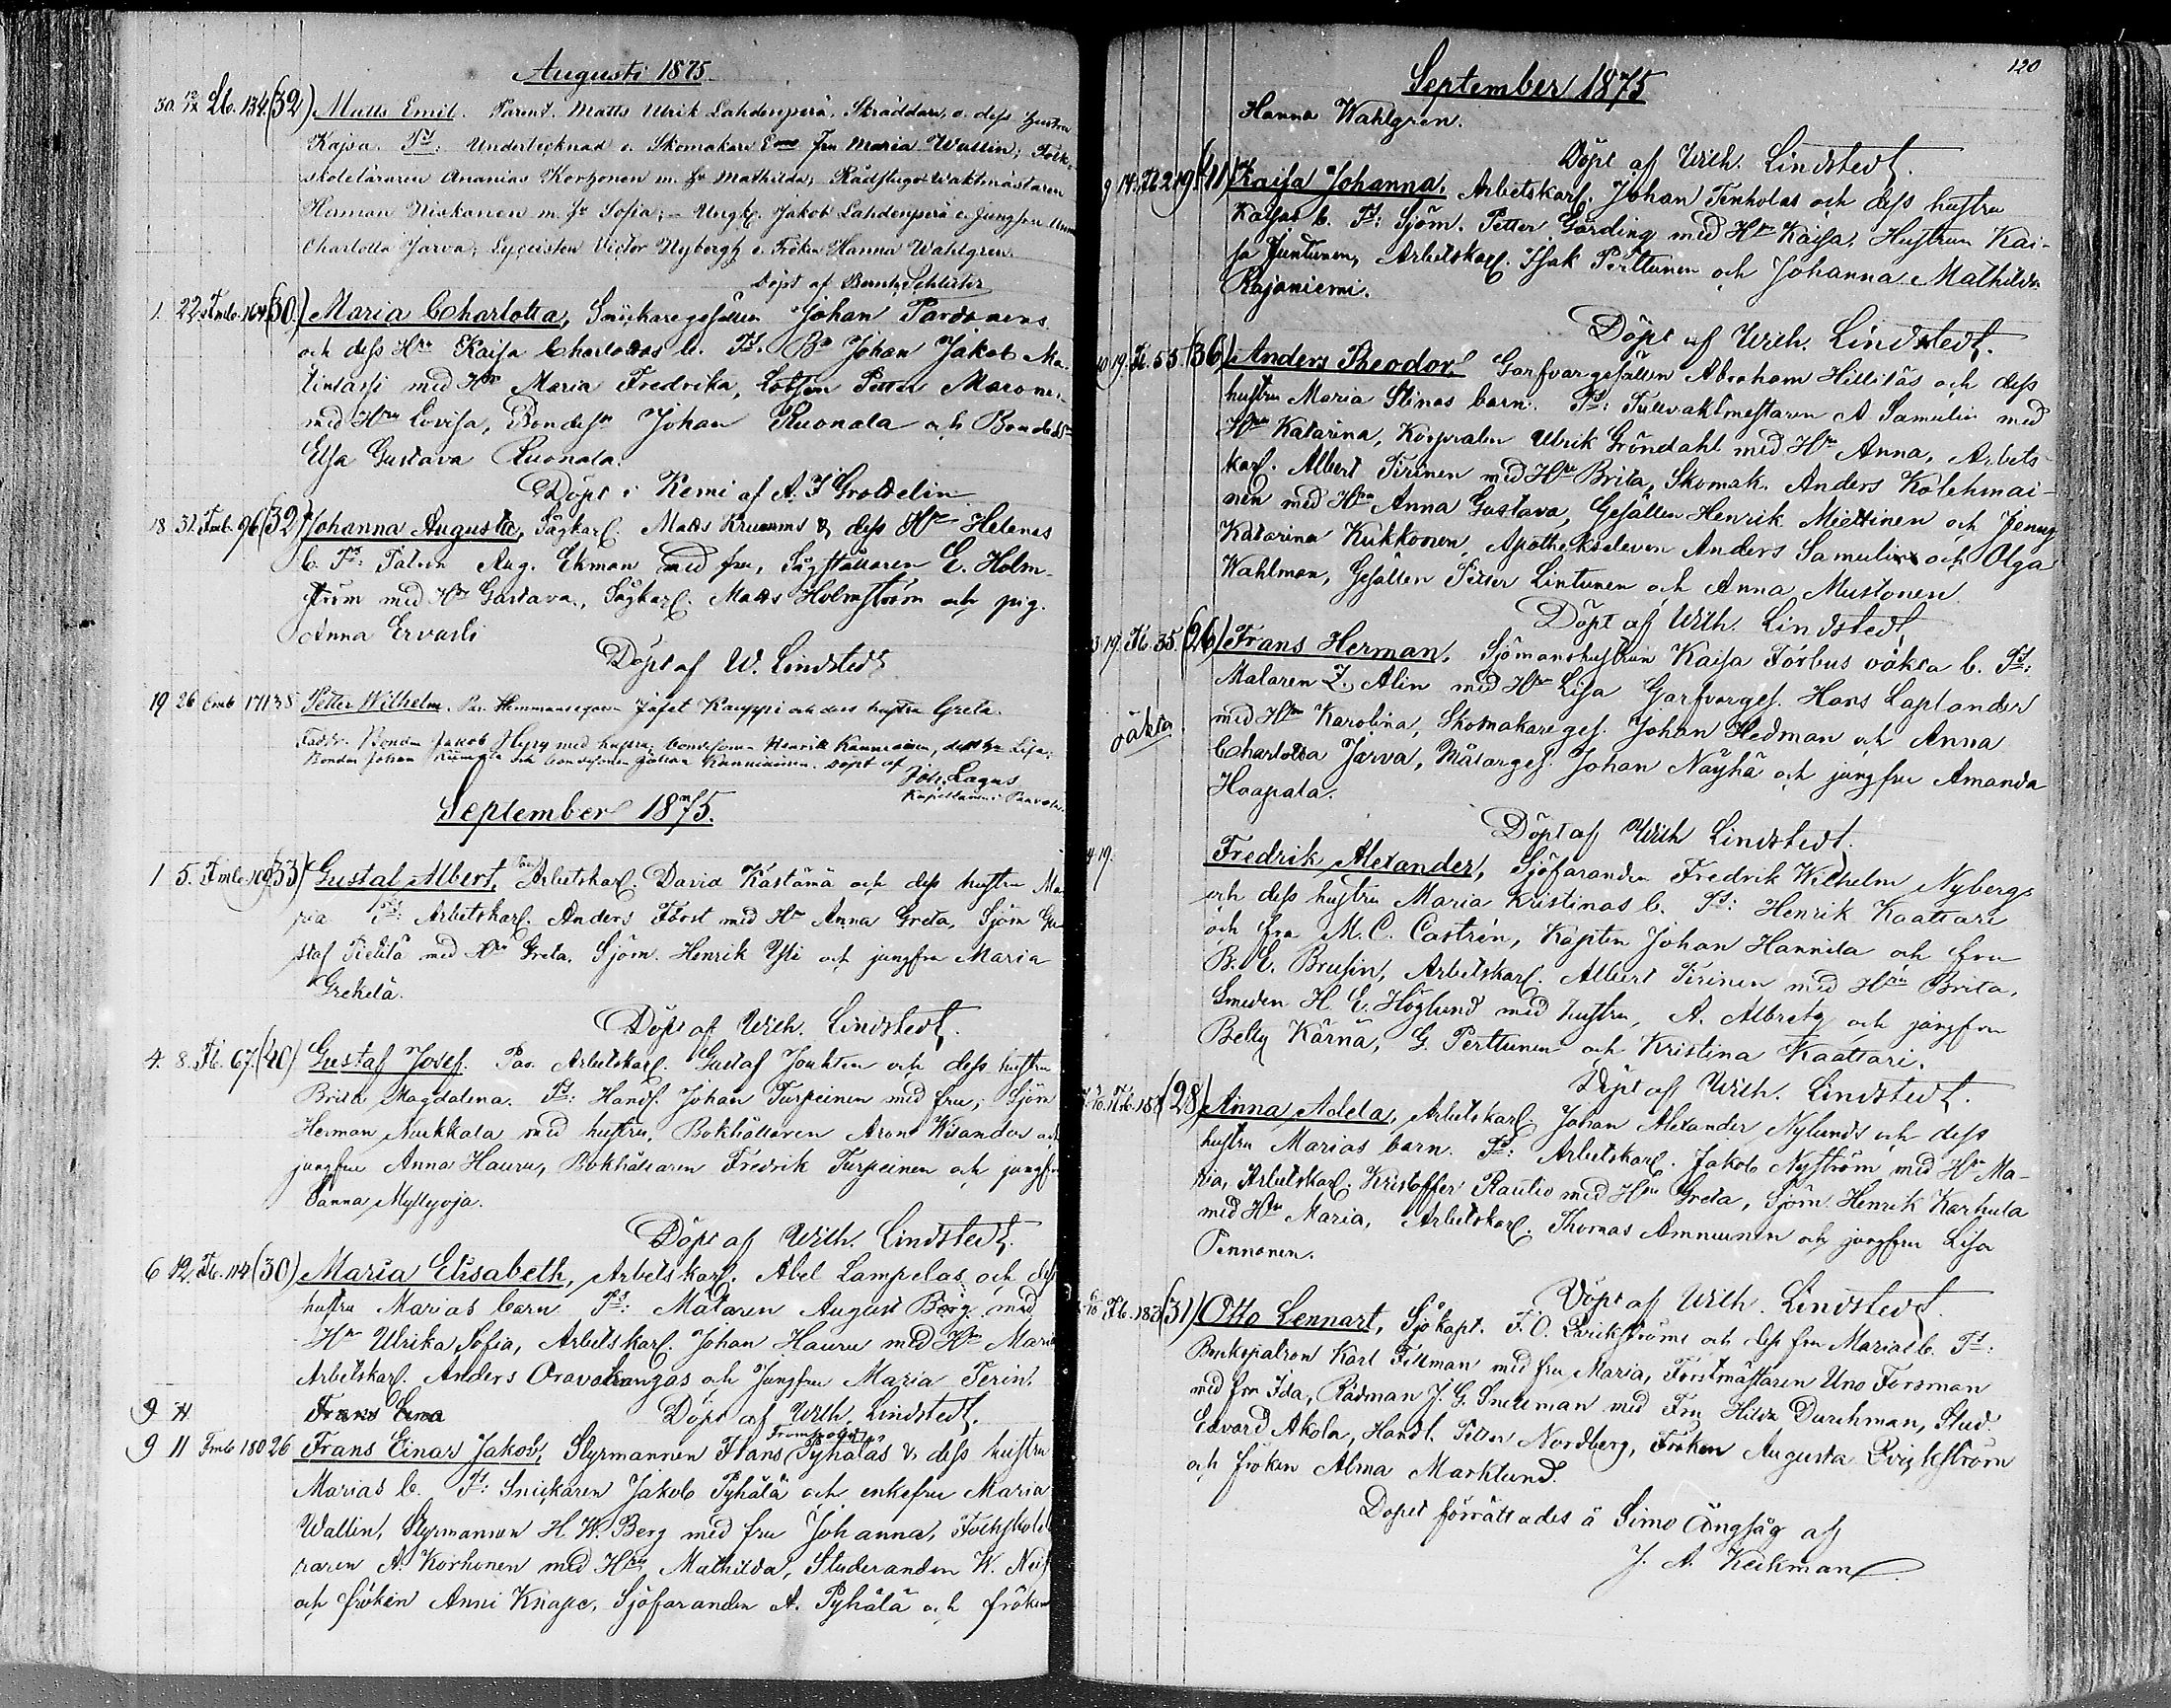 Augusti 1875
30. 12/12 Lb. 134. (32) Matts Emil. Parent. Matts Ulrik Lahdenperä, Skräddare, o. dess hustru
Kajsa. Ts: Undertecknad o. Skomakare Enk. fru Maria Wallin; Folk-
skoleläraren Ananias Korhonen m. hu Mathilda, Rådstugo Waktmästaren
Herman Niskanen m. hu Sofia; Ungk. Jakob Lahdenperä o. Jungfru Anna
Charlotta Jarva; Lyceisten Victor Nybergh o. Fröken Hanna Wahlgren.
Döpt af Bernh. Schlüter
1. 22. Fmlb. 164 (30) Maria Charlotta, Snickaregesällen Johan Pardanens
och dess Hru Kaisa Charlottas b. Ts. Bn Johan Jakob Ma-
tinlassi med Hru Maria Fredrika, Lotsen Petter Marone-
med Hru Lovisa, Bondesn Johan Ruonala och Bondedr
Elsa Gustava Ruonala.
Döpt i Kemi af A. F. Grotdelin
18 31. Fmb. 96 (32) Johanna Augusta, Sågkarl. Matts Kruums & dess Hru Helenas
b. Ts: Patron Aug. Ekman med fru, Sågställaren E. Holm-
ström med Hru Gustava, Sågkarl. Matts Holmström och pig.
Anna Ervasti
Döpt af W. Lindstedt
19 26 Emb 171 38 Petter Wilhelm. Par. Hemmansegaren Jafet Kauppi och dess hustru Greta.
Faddr. Bonden Jakob Hyry med hustru; bondesonen Henrik Kanniainen, dess hu Lisa;
Bonden Johan och bondesonen Johan Kanniainen. Döpt af
Joh. Lagus
Kapellanen i Paavola.
September 1875.
1 5. Fmlb. 109 (33) Gustaf Albert, Par. Arbetskarl. David Kästämä och dess hustru Ma-
ria Ts: Arbetskarl. Anders Först med Hru Anna Greta, Sjöm Gu-
staf Tietilä med Hru Greta. Sjöm. Henrik Ylli och jungfru Maria
Grekelä.
Döpt af Wilh. Lindstedt.
4. 8. Fb. 67. (40) Gustaf Josef. Par. Arbetskarl. Gustaf Jouhten och dess hustru
Brita Magdalena. Ts: Handl. Johan Turpeinen med fru; Sjöm
Herman Nurkkala med hustru, Bokhållaren Aron Wilander och
jungfru Anna Hauru, Bokhållaren Fredrik Turpeinen och jungfr
Sanna Myllyoja.
Döpt af Wilh. Lindstedt.
6 12. Fb. 114 (30) Maria Elisabeth, Arbetskarl. Abel Lampelas och dess
hustru Marias barn Ts: Målaren August Börg med
Hru Ulrika Sofia, Arbetskarl. Johan Hauru med Hru Maria
Arbetskarl. Anders Oravakangas och Jungfru Maria Terin.
9 11 Frans Eina Döpt af Wilh. Lindstedt.
9 11 Fmb 180 26 Frans Einar Jakob, Styrmannen Frans Pyhäläs & dess hustru
Marias b. Ts: Snickaren Jakob Pyhälä och enkefru Maria
Wallin, Styrmannen H. W. Berg med fru Johanna, Folkskolelä
raren A. Korhonen med Hru Mathilda, Studeranden W.
och fröken Anni Knape, Sjöfaranden A. Pyhälä och fröken
120
September 1875
Hanna Wahlgren.
Döpt af Wilh. Lindstedt.
9 14. Fb 219 (41) Kaisa Johanna, Arbetskarl. Johan Tenholas och dess hustru
Kaisas b. Ts: Sjöm. Petter Gårding med Hru Kaisa, Hustrun Kai-
sa Juntunen, Arbetskarl. Isak Perttunen och Johanna Mathilda
Rajaniemi.
Döpt af Wilh. Lindstedt.
10 19. Fb. 55. (36) Anders Theodor, Garfvargesällen Abraham Hilliläs och dess
hustru Maria Stinas barn. Ts: Tullvaktmestaren A Samulin med
Hru Katarina, Korpralen Ulrik Gröndahl med Hru Anna, Arbets-
karl. Albert Tirinen med Hru Brita, Skomak. Anders Kolehmai-
nen med Hru Anna Gustava, Gesällen Henrik Miettinen och Jenny
Katarina Kukkonen, Apotheksleven Anders Samulin och Olga
Wahlman, Gesällen Petter Lintunen och Anna Mustonen
Döpt af Wilh. Lindstedt
3 19. Fb. 35. (26) Frans Herman, Sjömanshustrun Kaisa Förbus oäkta b. Ts:
Målaren Z. Alin med Hru Lisa Garfvarges. Hans Laplander
oäkta med Hru Karolina, Skomakareges. Johan Hedman och Anna
Charlotta Jarva, Målarges. Johan Näyhä och jungfru Amanda
Haapala.
Döpt af Wilh Lindstedt.
4 19. Fredrik Alexander, Sjöfaranden Fredrik Wilhelm Nybergs
och dess hustru Maria Kristinas b. Ts: Henrik Kaattari
och fru M. C. Castrén, Kapten Johan Hannila och fru
B. E. Brusin, Arbetskarl. Albert Tirinen med Hru Brita,
Smeden H. E. Höglund med hustru, A. Albrety och jungfru
Betty Kärnä, G. Perttunen och Kristina Kaattari.
Döpt af Wilh. Lindstedt.
Fb. 158 (28) Anna Adela, Arbetskarl. Johan Alexander Nylunds och dess
hustru Marias barn. Ts: Arbetskarl. Jakob Nyström med Hru Ma-
ria, Arbetskarl. Kristoffer Rautio med Hru Greta, Sjöm. Henrik Karhula
med Hru Maria, Arbetskarl. Thomas Ammunen och jungfru Lisa
Pennanen.
Döpt af Wilh. Lindstedt.
Fb. 183 (31) Otto Lennart, Sjökapt. F. O. Qvickströms och dess fru Marias b. Ts:
Brukspatron Karl Tillman med fru Maria, Forstmästaren Uno Forsman
med fru Ida, Rådman J. G. Snellman med Fru Hilda Durchman, Stud.
Edvard Akola, Handl. Petter Nordberg, Fröken Augusta Qvickström
och fröken Alma Marklund.
Dopet förrättades å Simo Ångsåg af
J. A. Keckman